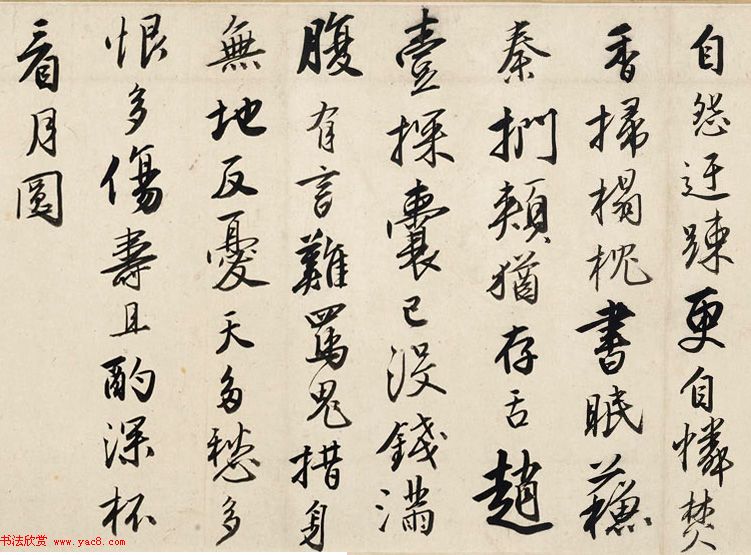 自怨迂踈更自憐焚
香掃榻枕書眠蘓
秦捫頰猶存舌趙
壹探囊已没錢滿
腹有言難罵鬼措身
無地反憂天多愁多
恨多傷壽且酌深杯
看月圓
书法欣赏
www.yac8.com